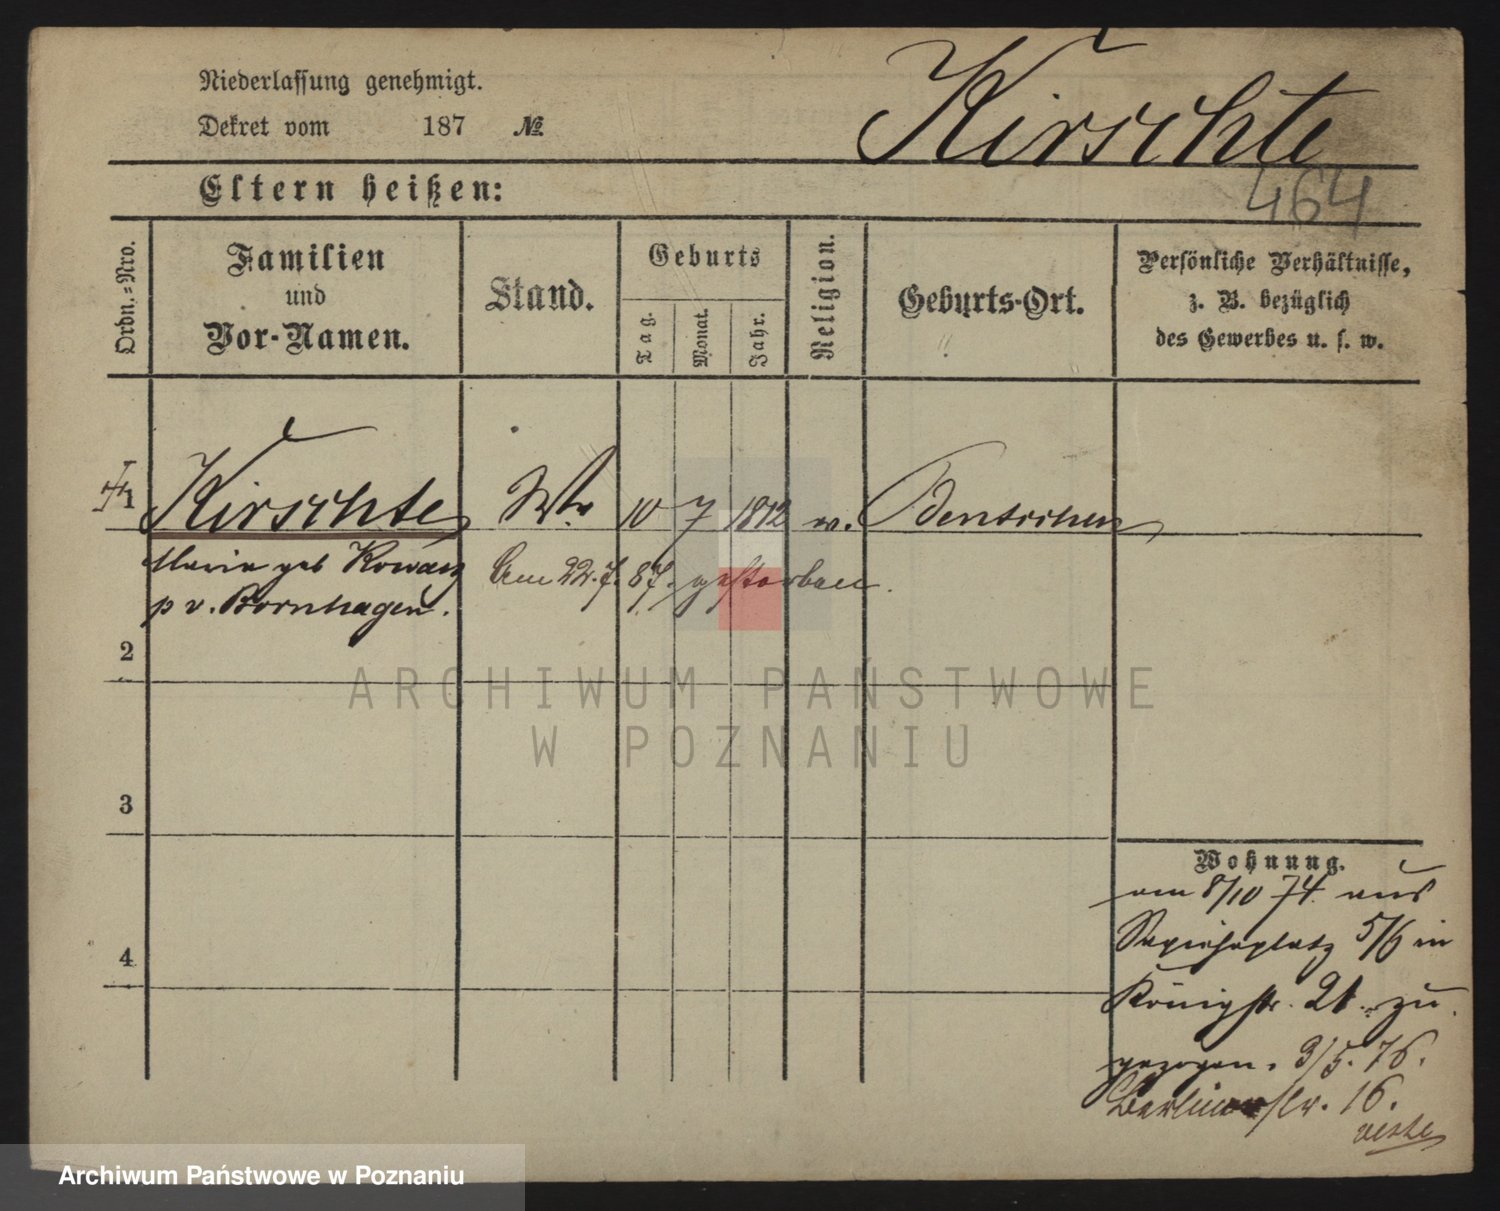 Niederlassung genehmigt.
Dekret vom 187 №
Kirschte
Eltern heißen:
464
Ordn.-Nro.
Familien
und
Vor-Namen.
Stand.
Geburts
Tag.
Monat.
Jahr.
Religion.
Geburts-Ort.
Persönliche Verhältnisse,
z. B. bezüglich
des Gewerbes u. s. w.
1 Kirschte Ww 10 7 1812 ev. Bentschen
Maria geb
Am 22.7.87. gestorben.
p v. Bornhagen.
2
ARCHIWUM PAŃSTWOWE
W POZNANIU
3
Wohnung.
am 8/10 74. aus
Sapiehaplatz 5/6 in
4
Königstr. 21. zu
gezogen. 3/5. 76.
Berlinerstr. 16.
Archiwum Państwowe w Poznaniu